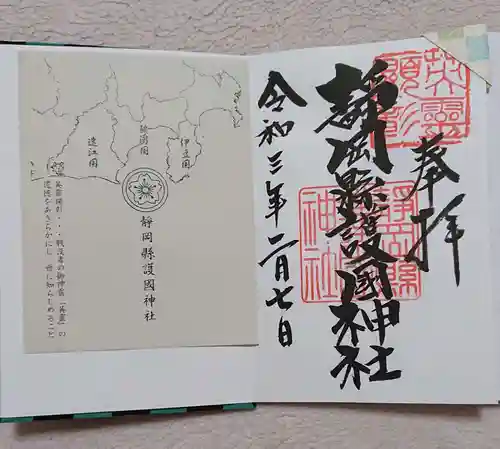 奉拝
英霊
顕彰
靜岡縣護國神社
靜岡縣
神社
令和三年二月七日
遠江国
駿河国
伊豆国
靜岡縣護國神社
英霊顕彰・・・戦没者の御神霊「英霊」の
遺徳をあきらかにし 世に知らしめること